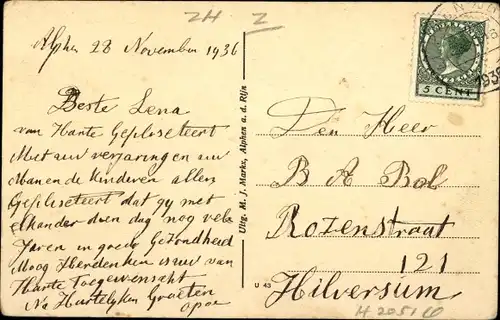 2H Z
Alphen 28 November 1936
Beste Lena
van Harte Gepleseteert
Met uw verjaringen uw
Man en de kinderen allen
Gepleseteert dat gy met
elkander dien dag nog vele
Jaren in goede Gezondheid
Moog Herdenken is uw van
Harte Toegewenscht
Na Hartelyken Groeten
opoe
Uitg. M. J. Markx, Alphen a. d. Rijn
U 43
NEDERLAND
5 CENT
1936
Den Heer
B A Bol
Rozenstraat
121
Hilversum
H 2051